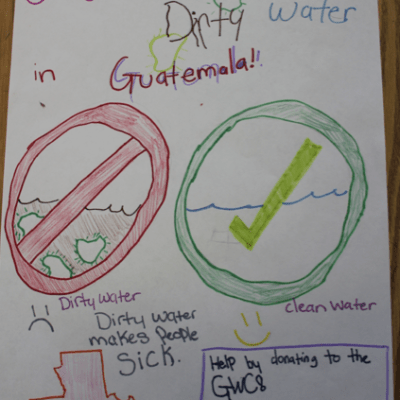 Dirty Water
in Guatemala!!
Dirty Water
clean water
Dirty Water
makes People
Sick.
Help by donating to the
GWC8